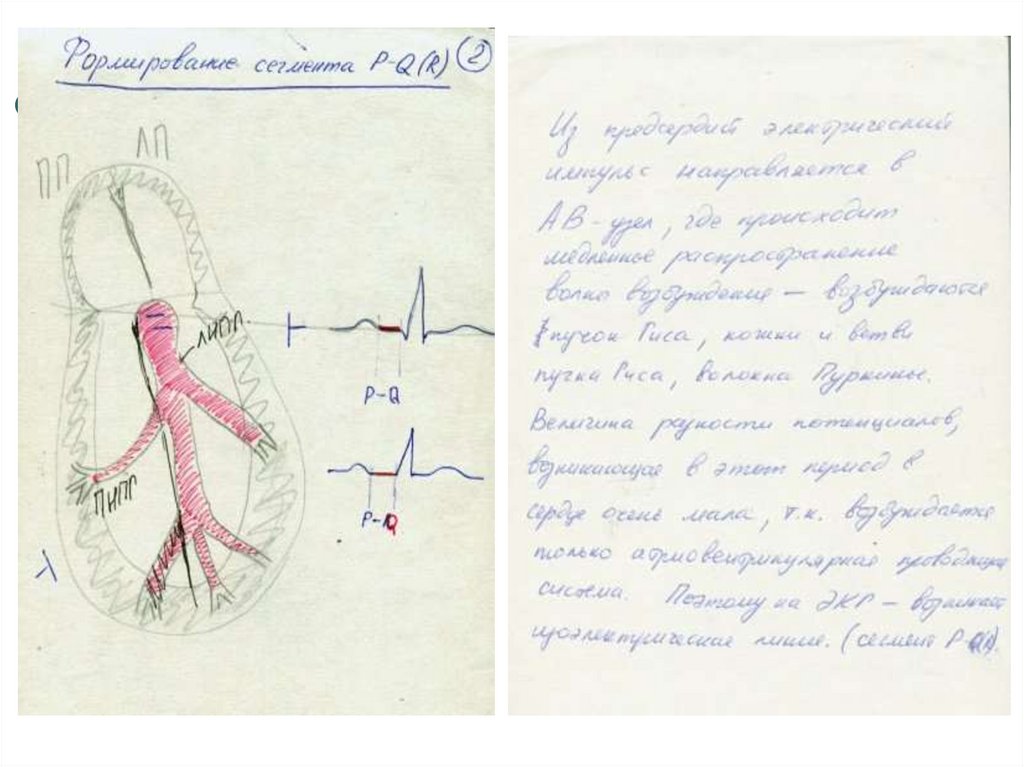 Формирование сегмента P-Q(R) (2)
ПП
ЛП
ЛНПГ
ПНПГ
P-Q
P-Q
Из предсердий электрический
импульс направляется в
АВ-узел, где происходит
медленное распространение
волны возбуждение — возбуждаются
пучок Гиса, ножки и ветви
пучка Гиса, волокна Пуркинье.
Величина разности потенциалов,
возникающая в этот период в
сердце очень мала, т.к. возбуждается
только атриовентрикулярная проводящая
система. Поэтому на ЭКГ — возникает
изоэлектрическая линия. (сегмент P-Q(R).